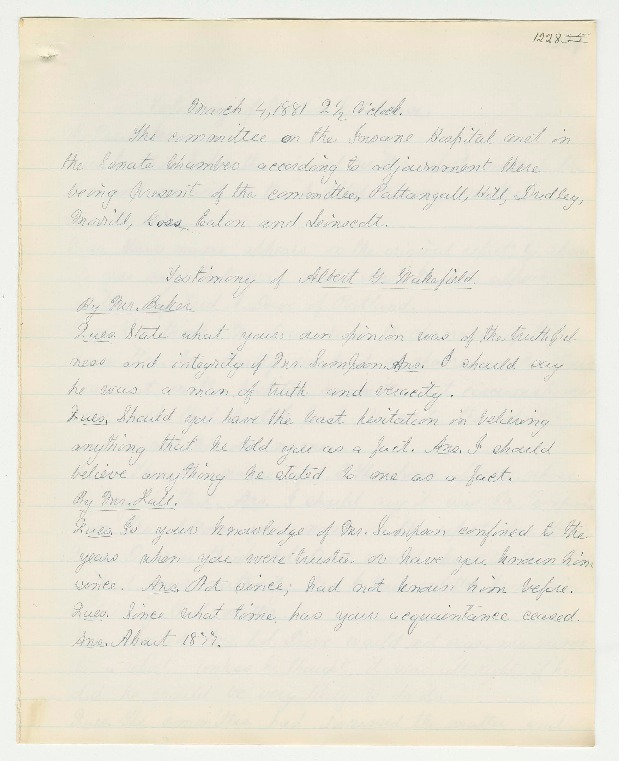 1228
March 4, 1881 2 1/2 O'clock.
The committee on the Insane Hospital met in
the Senate Chamber according to adjournment there
being present of the committee, Pattangall, Hill, Dudley,
Merrill, Goss, Eaton and Leinscott.
Testimony of Albert G. Wakefield
By Mr. Baker.
Ques. State what your own opinion was of the truthful-
ness and integrity of Mr. Simpson. Ans. I should say
he was a man of truth and veracity.
Ques. Should you have the least hesitation in believing
anything that he told you as a fact. Ans. I should
believe anything he stated to me as a fact.
By Mr. Hall.
Ques. Is your knowledge of Mr. Simpson confined to the
years when you were trustee or have you known him
since. Ans. since; had not known him before.
Ques. Since what time has your acquaintance ceased.
Ans. About 1877.